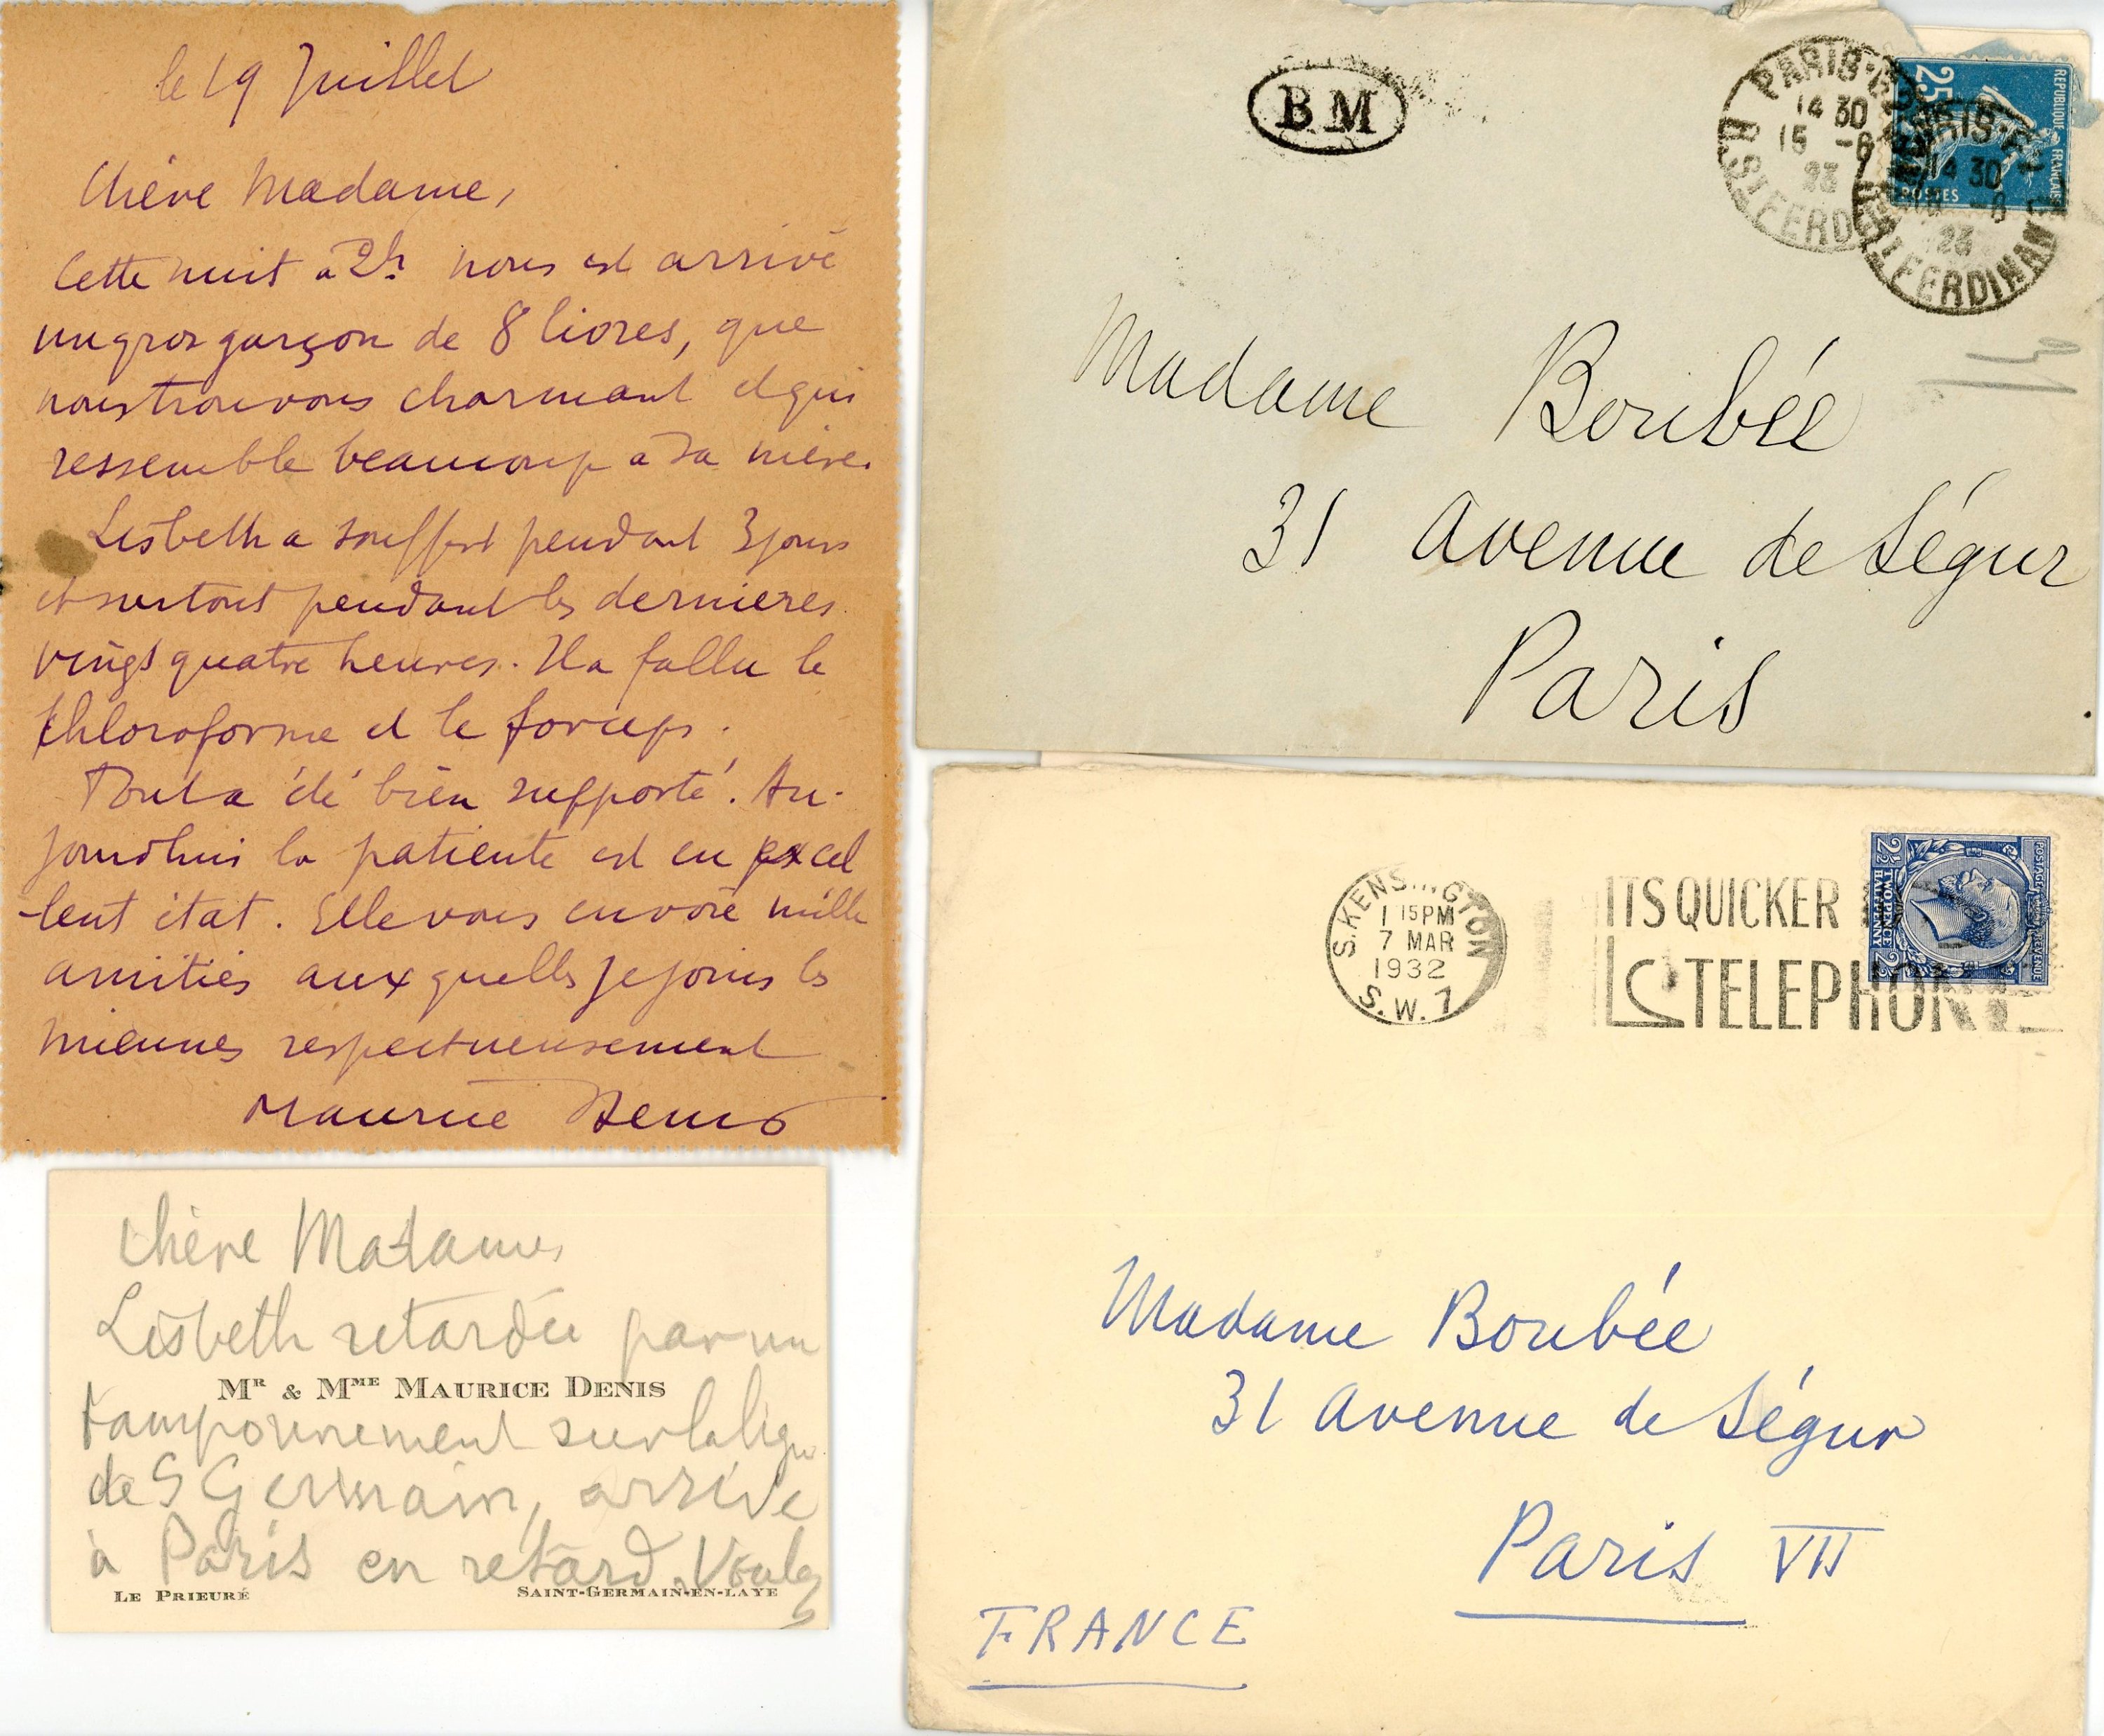 le 19 Juillet
Chère Madame,
Cette nuit à 2h nous est arrivé
un gros garçon de 8 livres, que
nous trouvons charmant et qui
ressemble beaucoup a sa mère.
Lisbeth a souffert pendant 3 jours
et surtout pendant les dernieres
vingt quatre heures. Il a fallu le
chloroforme et le forceps.
Tout a été bien supporté. Au-
jourdhui la patiente est en excel
-lent état. Elle vous envoie mille
amitiés auxquelles je joins les
miennes respectueusement
Maurice Denis
Chère Madame,
Lisbeth retardée par un
MR & MME MAURICE DENIS
tamponnement sur la ligne
de S Germain, arrive
à Paris en retard. Voulez
LE PRIEURÉ SAINT-GERMAIN-EN-LAYE
BM
PARIS
14 30
15 -6
23
R. ST FERD
25
REPUBLIQUE FRANÇAISE
POSTES
PARIS
14 30
15 -6
23
R. ST FERDINAND
Madame Boubée
31 Avenue de Ségur
Paris
S. KENSINGTON
1 15 PM
7 MAR
1932
S.W.7
ITS QUICKER
TELEPHONE
POSTAGE REVENUE
2½ TWOPENCE HALFPENNY 2½
Madame Boubée
31 Avenue de Ségur
Paris VII
FRANCE